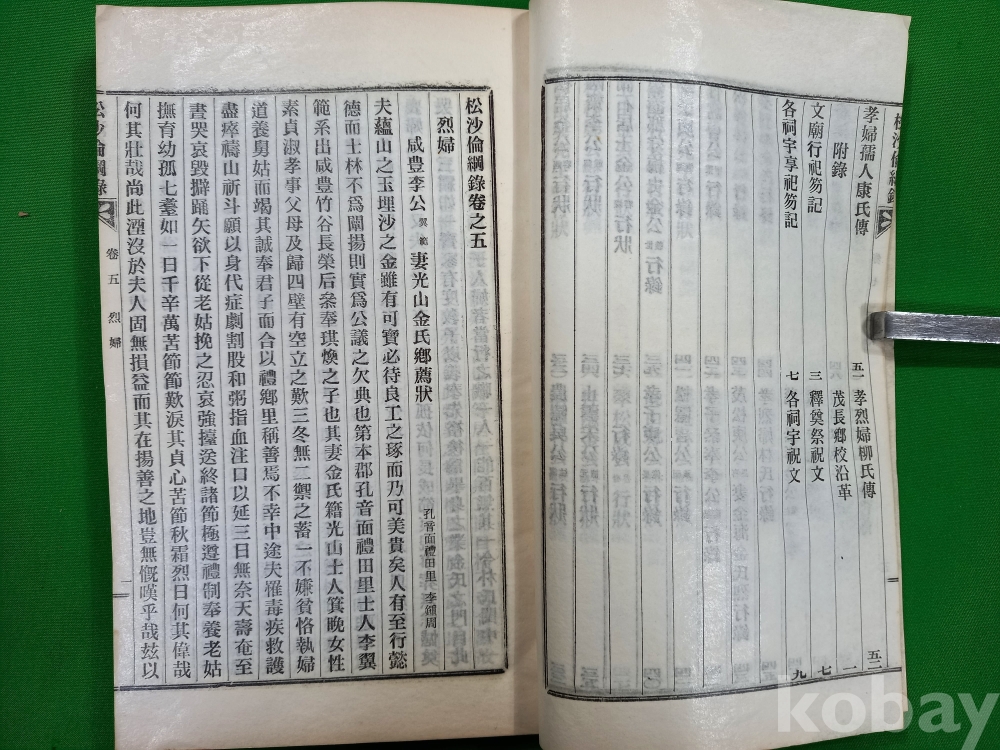 孝婦孺人康氏傳 五一 孝烈婦柳氏傳 五二
附錄 茂長鄕校沿革 一
文廟行祀笏記 三 釋奠祭祝文 七
各祠宇享祀笏記 七 各祠宇祝文 九
松沙倫綱錄卷之五
烈婦
咸豊李公翼範妻光山金氏鄕薦狀 孔音面禮田里 李鍾周
夫蘊山之玉埋沙之金雖有可寶必待良工之琢而乃可美貴矣人有至行懿
德而士林不爲闡揚則實爲公議之欠典也第本郡孔音面禮田里士人李翼
範系出咸豊竹谷長榮后叅奉琪煥之子也其妻金氏籍光山士人箕晚女性
素貞淑孝事父母及歸四壁有空立之歎三冬無二禦之蓄一不嫌貧恪執婦
道養舅姑而竭其誠奉君子而合以禮鄕里稱善焉不幸中途夫罹毒疾救護
盡瘁禱山祈斗願以身代症劇割股和粥指血注口以延三日無奈天壽奄至
晝哭哀毁擗踊矢欲下從老姑挽之忍哀強擡送終諸節極遵禮制奉養老姑
撫育幼孤七耋如一日千辛萬苦節節歎淚其貞心苦節秋霜烈日何其偉哉
何其壯哉尙此湮沒於夫人固無損益而其在揚善之地豈無慨嘆乎哉玆以
松沙倫綱錄
卷五 烈婦
一
kobay